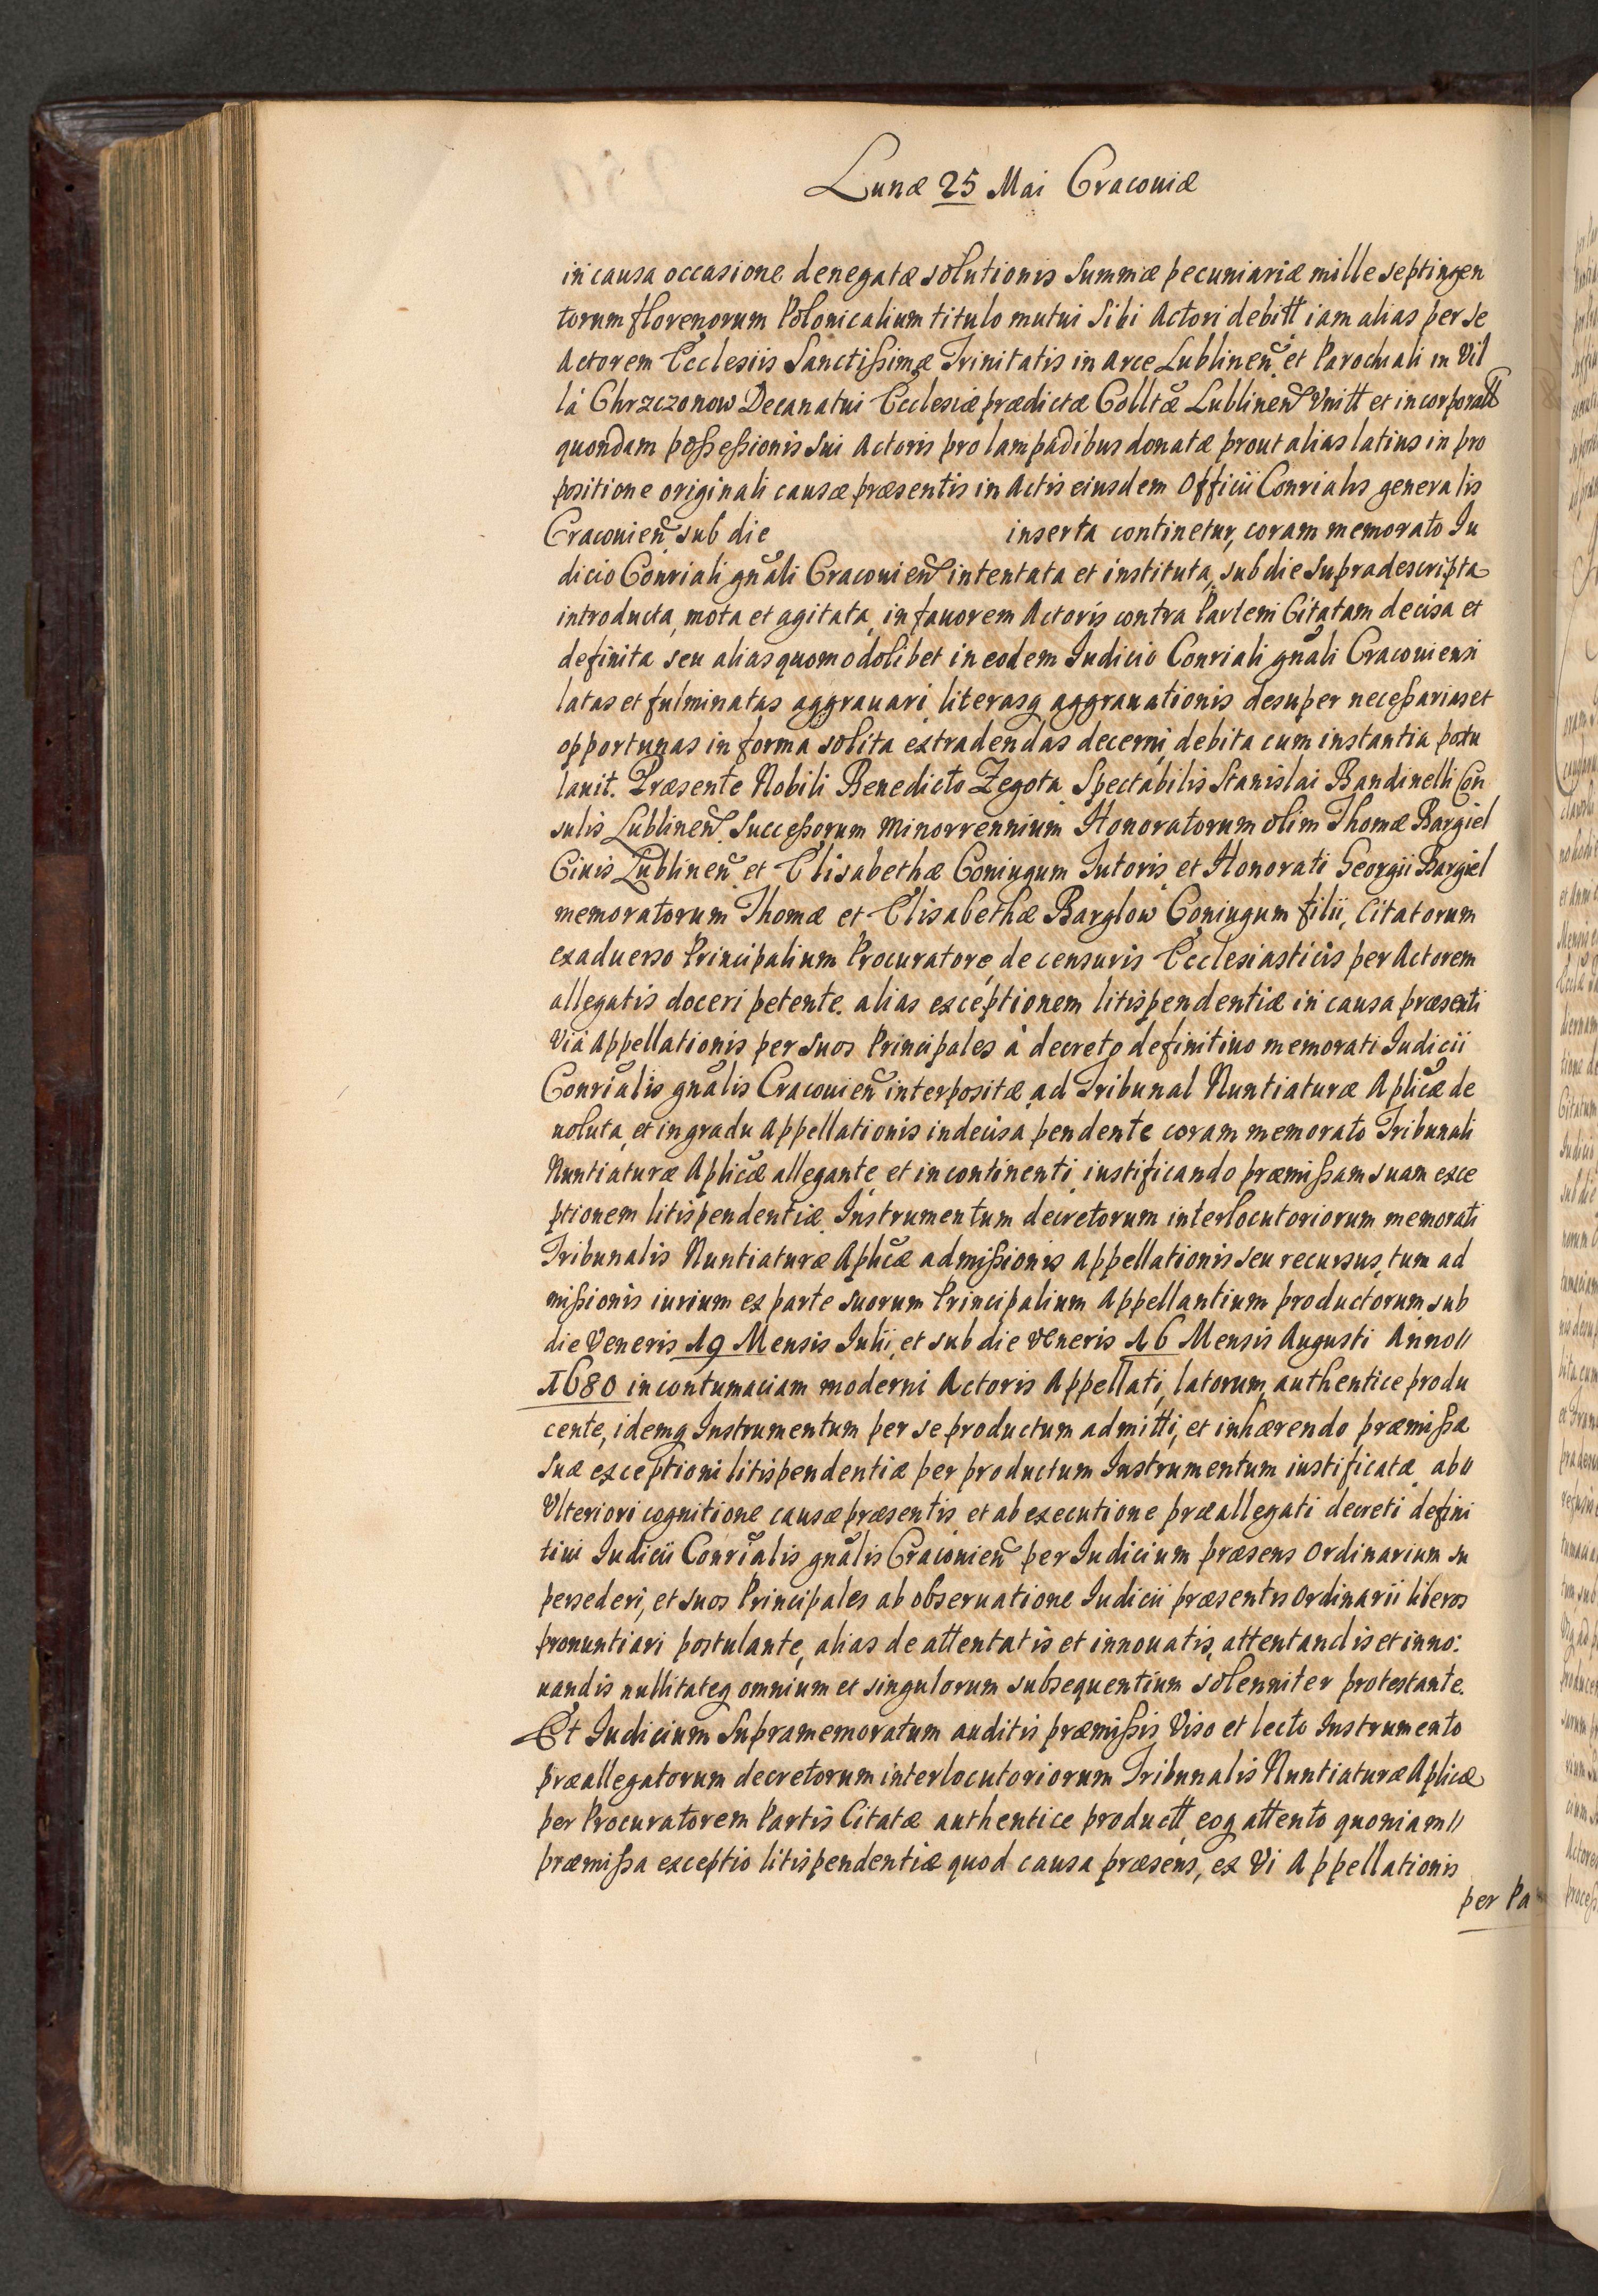 Lunæ 25 Mai Cracouiæ
in causa occasione denegatæ solutionis Summæ pecuniariæ mille septingen
torum florenorum Polonicalium titulo mutui Sibi Actori debitt iam alias per se
Actorem Ecclesiis Sanctissimæ Trinitatis in Arce Lublinen̄ et Parochiali in Vil
lâ Chrzczonow Decanatui Ecclesiæ prædictæ Colltæ Lublinen̄ Vnitt et incorporatt
quondam possessionis sui Actoris pro lampadibus donatæ prout alias latius in pro
positione originali causæ præsentis in Actis eiusdem Officii Conrialis generalis
Cracouien̄ sub die inserta continetur, coram memorato Iu
dicio Conriali gnāli Cracouien̄ intentata et instituta, sub die Supradescripta
introducta, mota et agitata, in fauorem Actoris contra Partem Citatam decisa et
definita seu alias quomodolibet in eodem Iudicio Conriali gnāli Cracouiensi
latas et fulminatas aggrauari literasq aggrauationis desuper necessarias et
opportunas in forma solita extradendas decerni debita cum instantia postu
lauit. Præsente Nobili Benedicto Zegota Spectabilis Stanislai Bandinelli Con̄
sulis Lublinen̄. Successorum Minorrennium Honoratorum olim Thomæ Bargiel
Ciuis Lublinen̄ et Elisabethæ Coniugum Tutoris et Honorati Georgii Bargiel
memoratorum Thomæ et Elisabethæ Barglow Coniugum filii, Citatorum
ex aduerso Principalium Procuratore, de censuris Ecclesiasticis per Actorem
allegatis doceri petente. alias exceptionem litispendentiæ in causa præsenti
Viâ Appellationis per suos Principales à decreto definitiuo memorati Iudicii
Conriālis gnālis Cracouien̄ interpositæ ad Tribunal Nuntiaturæ Aplicæ de
uoluta, et in gradu Appellationis indecisa pendente coram memorato Tribunali
Nuntiaturæ Aplicæ allegante et incontinenti iustificando præmissam suam exce
ptionem litispendentiæ Instrumentum decretorum interlocutoriorum memorati
Tribunalis Nuntiaturæ Aplicæ admissionis appellationis seu recursus, tum ad
missionis iurium ex parte suorum Principalium Appellantium productorum sub
die Veneris 19 Mensis Iulii, et sub die veneris 16 Mensis Augusti Anno//
1680 in contumaciam moderni Actoris Appellati, latorum, authentice produ
cente, idemq Instrumentum per se productum admitti, et inhærendo præmissæ
suæ exceptioni litispendentiæ per productum Instrumentum iustificatæ ab//
Vlteriori cognitione causæ præsentis et ab executione præallegati decreti defini
tiui Iudicii Conriālis gnālis Cracouien̄ per Iudicium præsens Ordinarium su
persederi, et suos Principales ab obseruatione Iudicii præsentis Ordinarii liberos
pronuntiari postulante, alias de attentatis et innouatis, attentandis et inno:
uandis nullitateq omnium et singulorum subsequentium solenniter protestante.
Et Iudicium Supramemoratum auditis præmissis, Viso et lecto Instrumento
præallegatorum decretorum interlocutoriorum Tribunalis Nuntiaturæ Aplicæ
per Procuratorem Partis Citatæ authentice productt, eoq attento quoniam//
præmissa exceptio litispendentiæ quod causa præsens, ex Vi Appellationis
per Pa